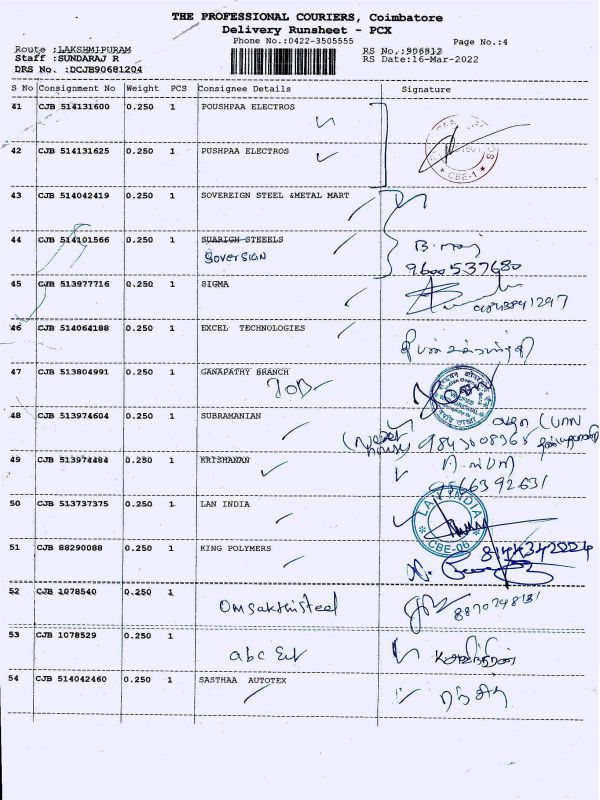 THE PROFESSIONAL COURIERS, Coimbatore
Delivery Runsheet - PCX
Phone No.:0422-3505555
Page No.:4
Route :LAKSHMIPURAM
RS No.:906812
Staff :SUNDARAJ R
RS Date:16-Mar-2022
DRS No. :DCJB90681204
S No Consignment No Weight PCS Consignee Details Signature
41 CJB 514131600 0.250 1 POUSHPAA ELECTROS
42 CJB 514131625 0.250 1 PUSHPAA ELECTROS
CBE-1
43 CJB 514042419 0.250 1 SOVEREIGN STEEL &METAL MART
44 CJB 514101566 0.250 1 SUARIGH STEEELS
Soversian
9600537680
45 CJB 513977716 0.250 1 SIGMA
46 CJB 514064188 0.250 1 EXCEL TECHNOLOGIES
47 CJB 513804991 0.250 1 GANAPATHY BRANCH
48 CJB 513974604 0.250 1 SUBRAMANIAN
49 CJB 513974484 0.250 1 KRISHANAN
50 CJB 513737375 0.250 1 LAN INDIA
LAN INDIA
CBE-06
51 CJB 88290088 0.250 1 KING POLYMERS
8144342024
52 CJB 1078540 0.250 1
Omsakthisteel
53 CJB 1078529 0.250 1
abc
54 CJB 514042460 0.250 1 SASTHAA AUTOTEX